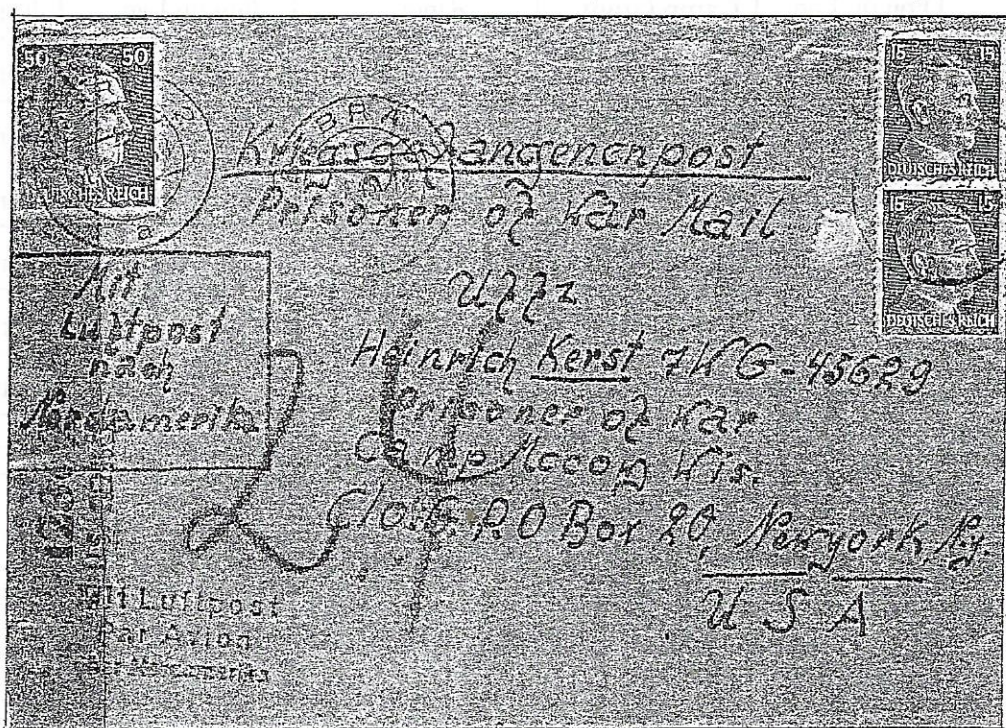 50 50
DEUTSCHES REICH
15 15
DEUTSCHES REICH
15 15
DEUTSCHES REICH
a
Kriegsgefangenenpost
Prisoner of War Mail
Uffz
Heinrich Kerst 7WG-45629
Prisoner of War
Camp Mccoy Wis.
C/o. G.P.O Box 20, Newyork Ny.
U S A
Mit
Luftpost
nach
Nordamerika
Mit Luftpost
Par Avion